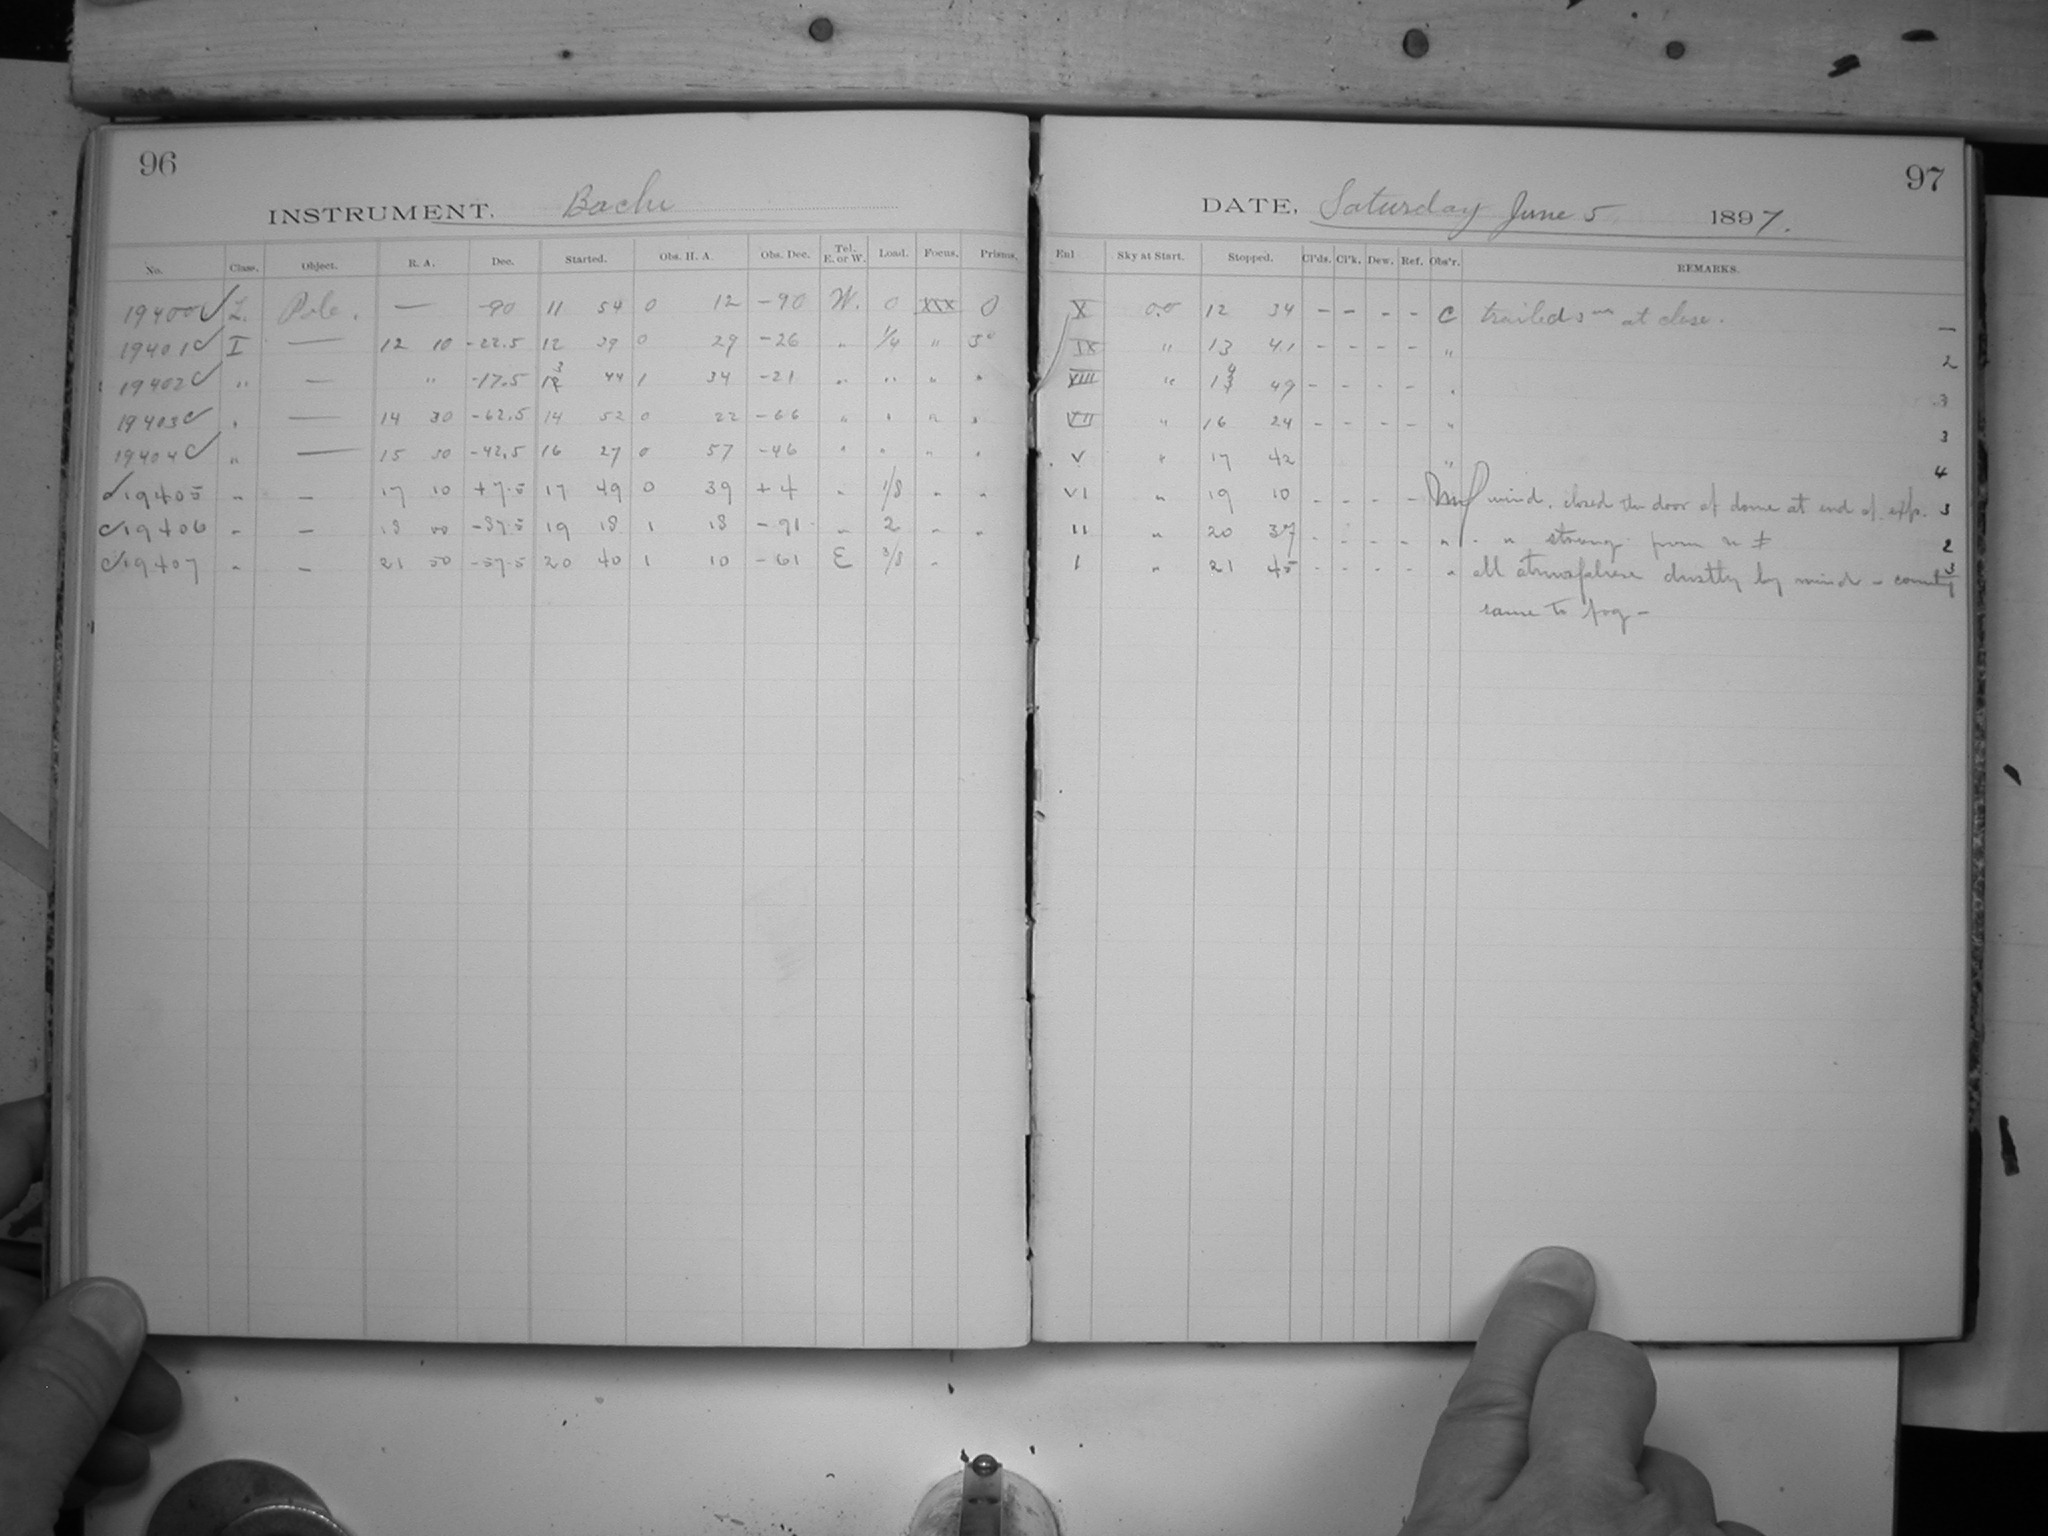 96
INSTRUMENT. Bache
No. Class. Object. R. A. Dec. Started. Obs. H. A. Obs. Dec. Tel. E. or W. Load. Focus. Prisms.
19400 L. Pole. — -90 11 54 0 12 -90 W. 0 XXX 0
19401 I — 12 10 -22.5 12 39 0 29 -26 " 1/4 " 5°
19402 " — " -17.5 13 44 1 34 -21 " " " "
19403 " — 14 30 -62.5 14 52 0 22 -66 " " " "
19404 " — 15 30 -42.5 16 27 0 57 -46 " " " "
19405 " — 17 10 +7.5 17 49 0 39 +4 " 1/8 " "
19406 " — 18 00 -87.5 19 18 1 18 -91 " 2 " "
19407 " — 21 50 -57.5 20 40 1 10 -61 E 3/8 "
97
DATE, Saturday June 5 1897.
Enl Sky at Start. Stopped. Cl'ds. Cl'k. Dew. Ref. Obs'r. REMARKS.
X 0.0 12 34 - - - - C trailed 3 m at close. —
IX " 13 41 - - - - " 2
XIII " 14 49 - - - - " 3
VII " 16 24 - - - - " 3
V " 17 42 " 4
VI " 19 10 - - - - wind. closed the door of dome at end of exp. 3
II " 20 37 - - - - " " " strong from n 2
I " 21 45 - - - - " all atmosphere dustly by wind - 3
same to fog -